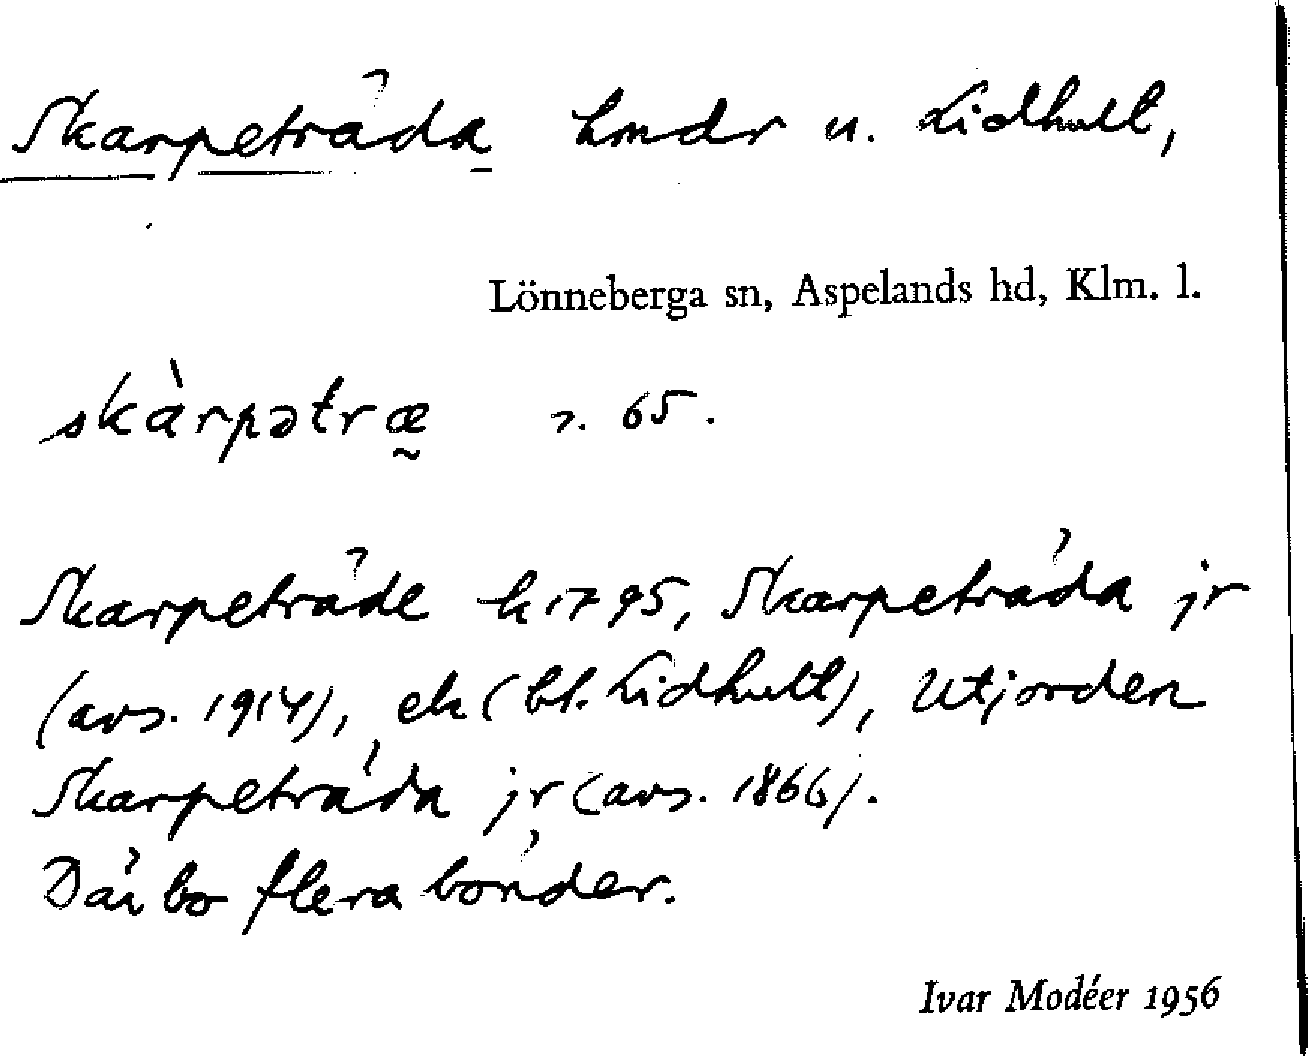 Skarpeträda lmdr u. Lidhult,
Lönneberga sn, Aspelands hd, Klm. l.
skàrpətræ̰ s. 65.
Skarpeträde k 1795, Skarpeträda jr
(avs. 1914), ek (bl. Lidhult), Utjorden
Skarpeträda jr (avs. 1866).
Där bo flera bönder.
Ivar Modéer 1956